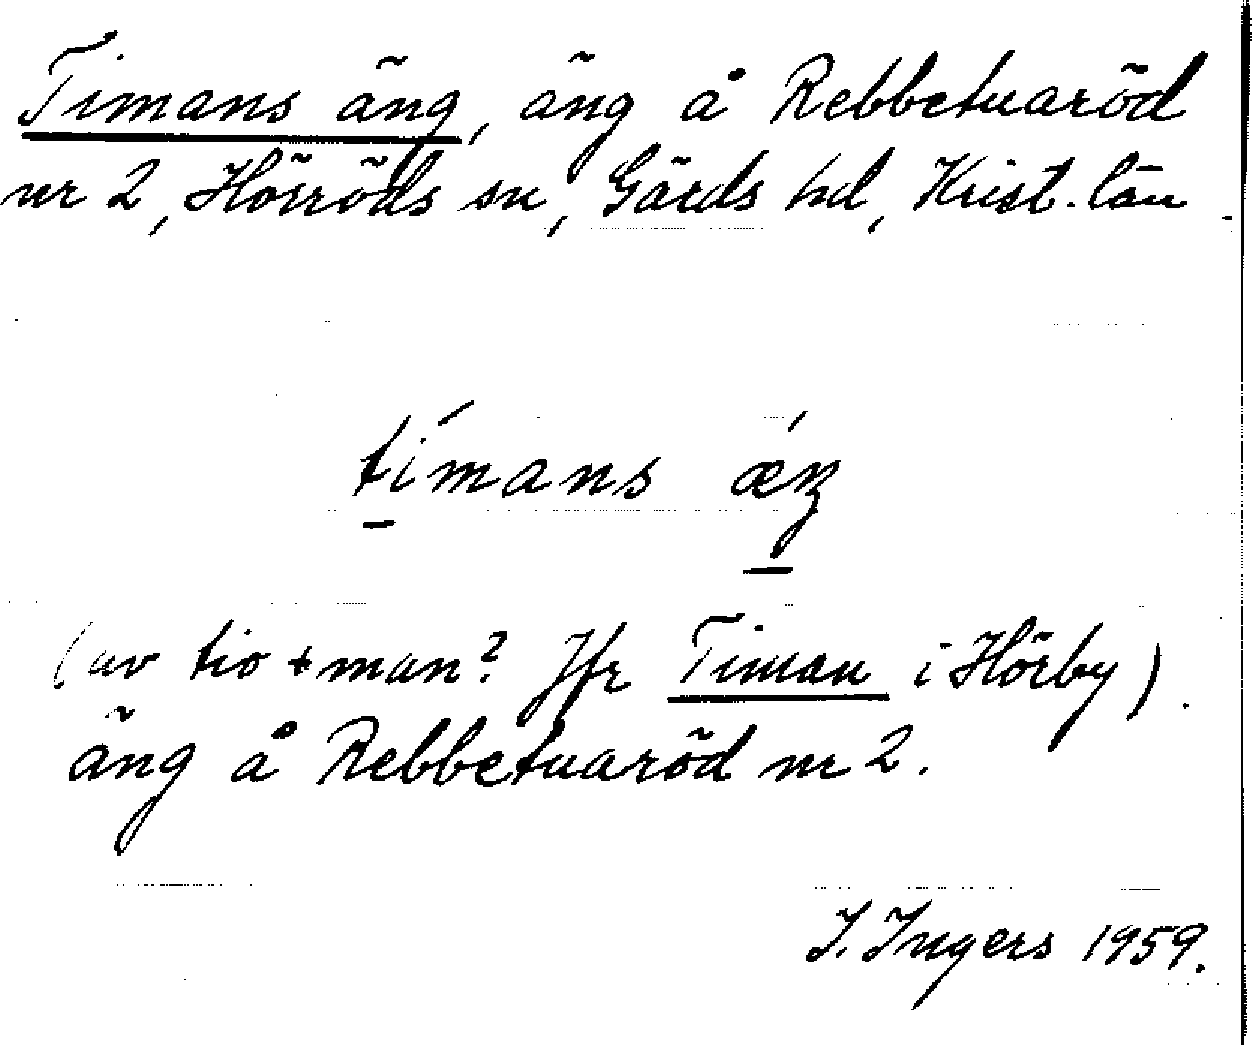 Timans äng, äng å Rebbetuaröd
nr 2, Hörröds sn, Gärds hd, Krist. län.
tímans ǽŋ
(av tio + man? Jfr Timan i Hörby).
äng å Rebbetuaröd nr 2.
I. Ingers 1959.